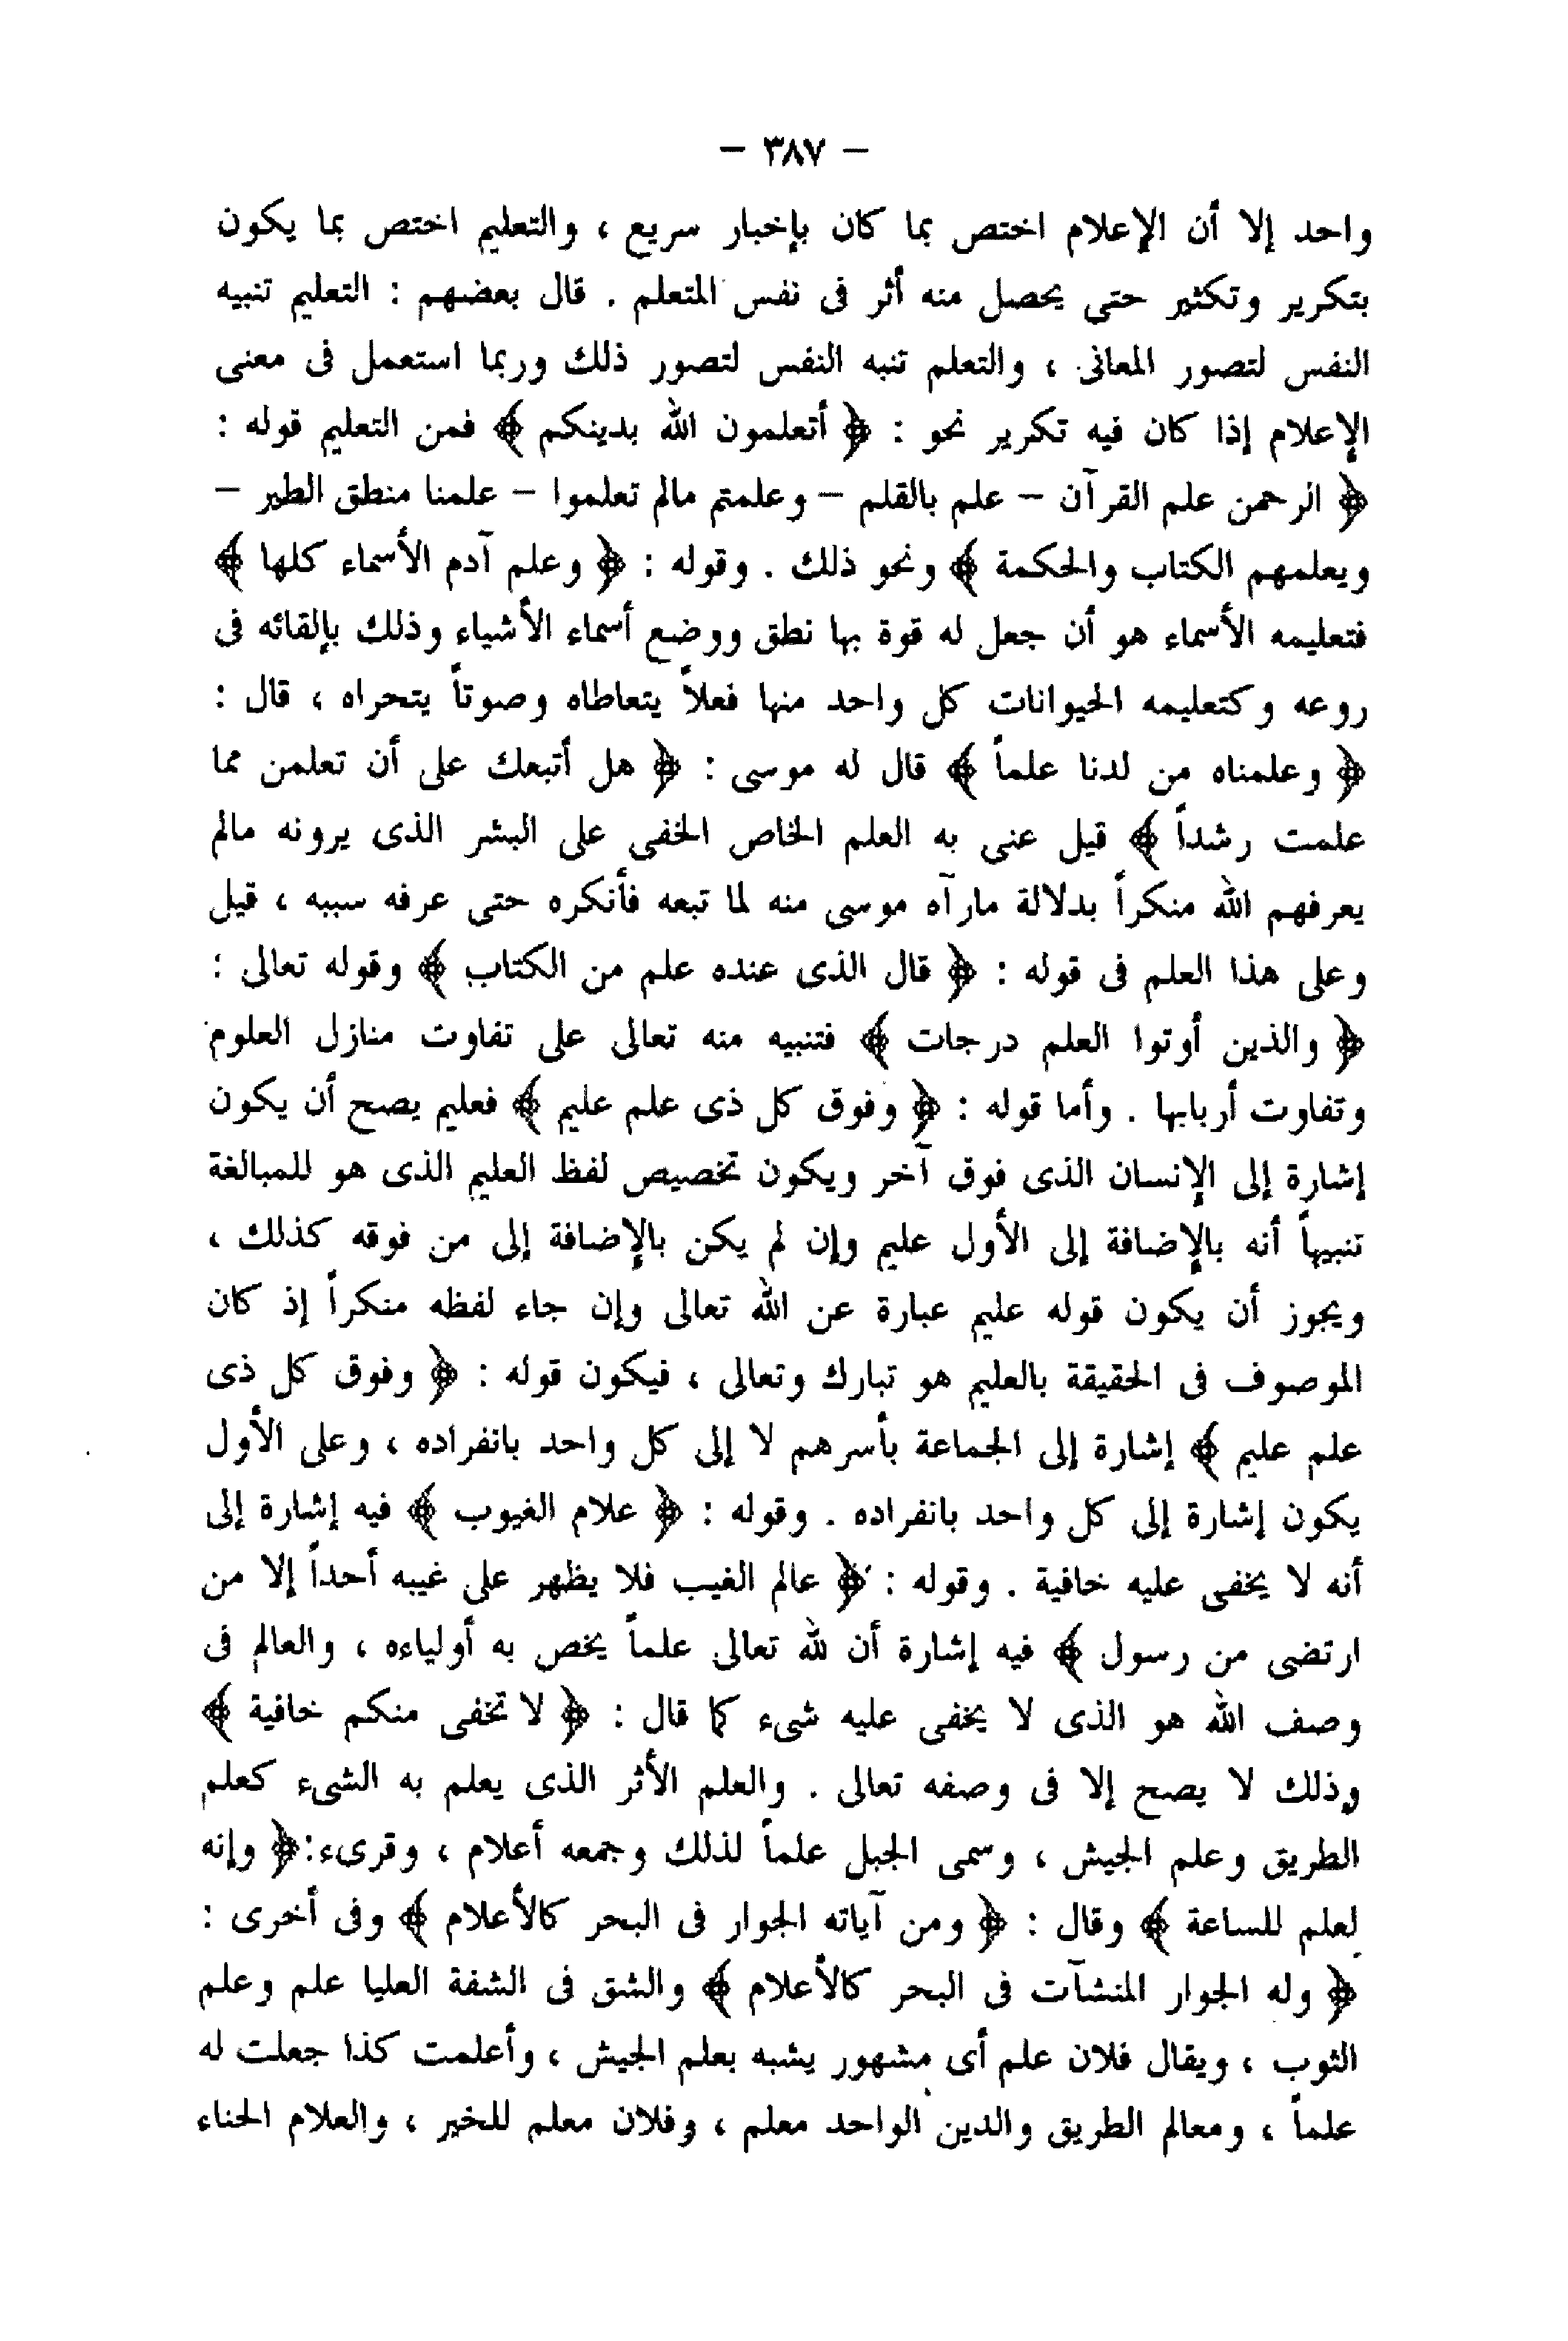 – ٣٨٧ –
واحد إلا أن الإعلام اختص بما كان بإخبار سريع ، والتعليم اختص بما يكون
بتكرير وتكثير حتى يحصل منه أثر فى نفس المتعلم . قال بعضهم : التعليم تنبيه
النفس لتصور المعانى ، والتعلم تنبه النفس لتصور ذلك وربما استعمل فى معنى
الإعلام إذا كان فيه تكرير نحو : ﴿ أتعلمون الله بدينكم ﴾ فمن التعليم قوله :
﴿ الرحمن علم القرآن – علم بالقلم – وعلمتم مالم تعلموا – علمنا منطق الطير –
ويعلمهم الكتاب والحكمة ﴾ ونحو ذلك . وقوله : ﴿ وعلم آدم الأسماء كلها ﴾
فتعليمه الأسماء هو أن جعل له قوة بها نطق ووضع أسماء الأشياء وذلك بإلقائه فى
روعه وكتعليمه الحيوانات كل واحد منها فعلاً يتعاطاه وصوتاً يتحراه ، قال :
﴿ وعلمناه من لدنا علماً ﴾ قال له موسى : ﴿ هل أتبعك على أن تعلمن مما
علمت رشداً ﴾ قيل عنى به العلم الخاص الخفى على البشر الذى يرونه مالم
يعرفهم الله منكراً بدلالة مارآه موسى منه لما تبعه فأنكره حتى عرفه سببه ، قيل
وعلى هذا العلم فى قوله : ﴿ قال الذى عنده علم من الكتاب ﴾ وقوله تعالى :
﴿ والذين أوتوا العلم درجات ﴾ فتنبيه منه تعالى على تفاوت منازل العلوم
وتفاوت أربابها . وأما قوله : ﴿ وفوق كل ذى علم عليم ﴾ فعليم يصح أن يكون
إشارة إلى الإنسان الذى فوق آخر ويكون تخصيص لفظ العليم الذى هو للمبالغة
تنبيهاً أنه بالإضافة إلى الأول عليم وإن لم يكن بالإضافة إلى من فوقه كذلك ،
ويجوز أن يكون قوله عليم عبارة عن الله تعالى وإن جاء لفظه منكراً إذ كان
الموصوف فى الحقيقة بالعليم هو تبارك وتعالى ، فيكون قوله : ﴿ وفوق كل ذى
علم عليم ﴾ إشارة إلى الجماعة بأسرهم لا إلى كل واحد بانفراده ، وعلى الأول
يكون إشارة إلى كل واحد بانفراده . وقوله : ﴿ علام الغيوب ﴾ فيه إشارة إلى
أنه لا يخفى عليه خافية . وقوله : ﴿ عالم الغيب فلا يظهر على غيبه أحداً إلا من
ارتضى من رسول ﴾ فيه إشارة أن لله تعالى علماً يخص به أولياءه ، والعالم فى
وصف الله هو الذى لا يخفى عليه شىء كما قال : ﴿ لا تخفى منكم خافية ﴾
وذلك لا يصح إلا فى وصفه تعالى . والعلم الأثر الذى يعلم به الشىء كعلم
الطريق وعلم الجيش ، وسمى الجبل علماً لذلك وجمعه أعلام ، وقرىء:﴿ وإنه
لعلم للساعة ﴾ وقال : ﴿ ومن آياته الجوار فى البحر كالأعلام ﴾ وفى أخرى :
﴿ وله الجوار المنشآت فى البحر كالأعلام ﴾ والشق فى الشفة العليا علم وعلم
الثوب ، ويقال فلان علم أى مشهور يشبه بعلم الجيش ، وأعلمت كذا جعلت له
علماً ، ومعالم الطريق والدين الواحد معلم ، وفلان معلم للخير ، والعلام الحناء